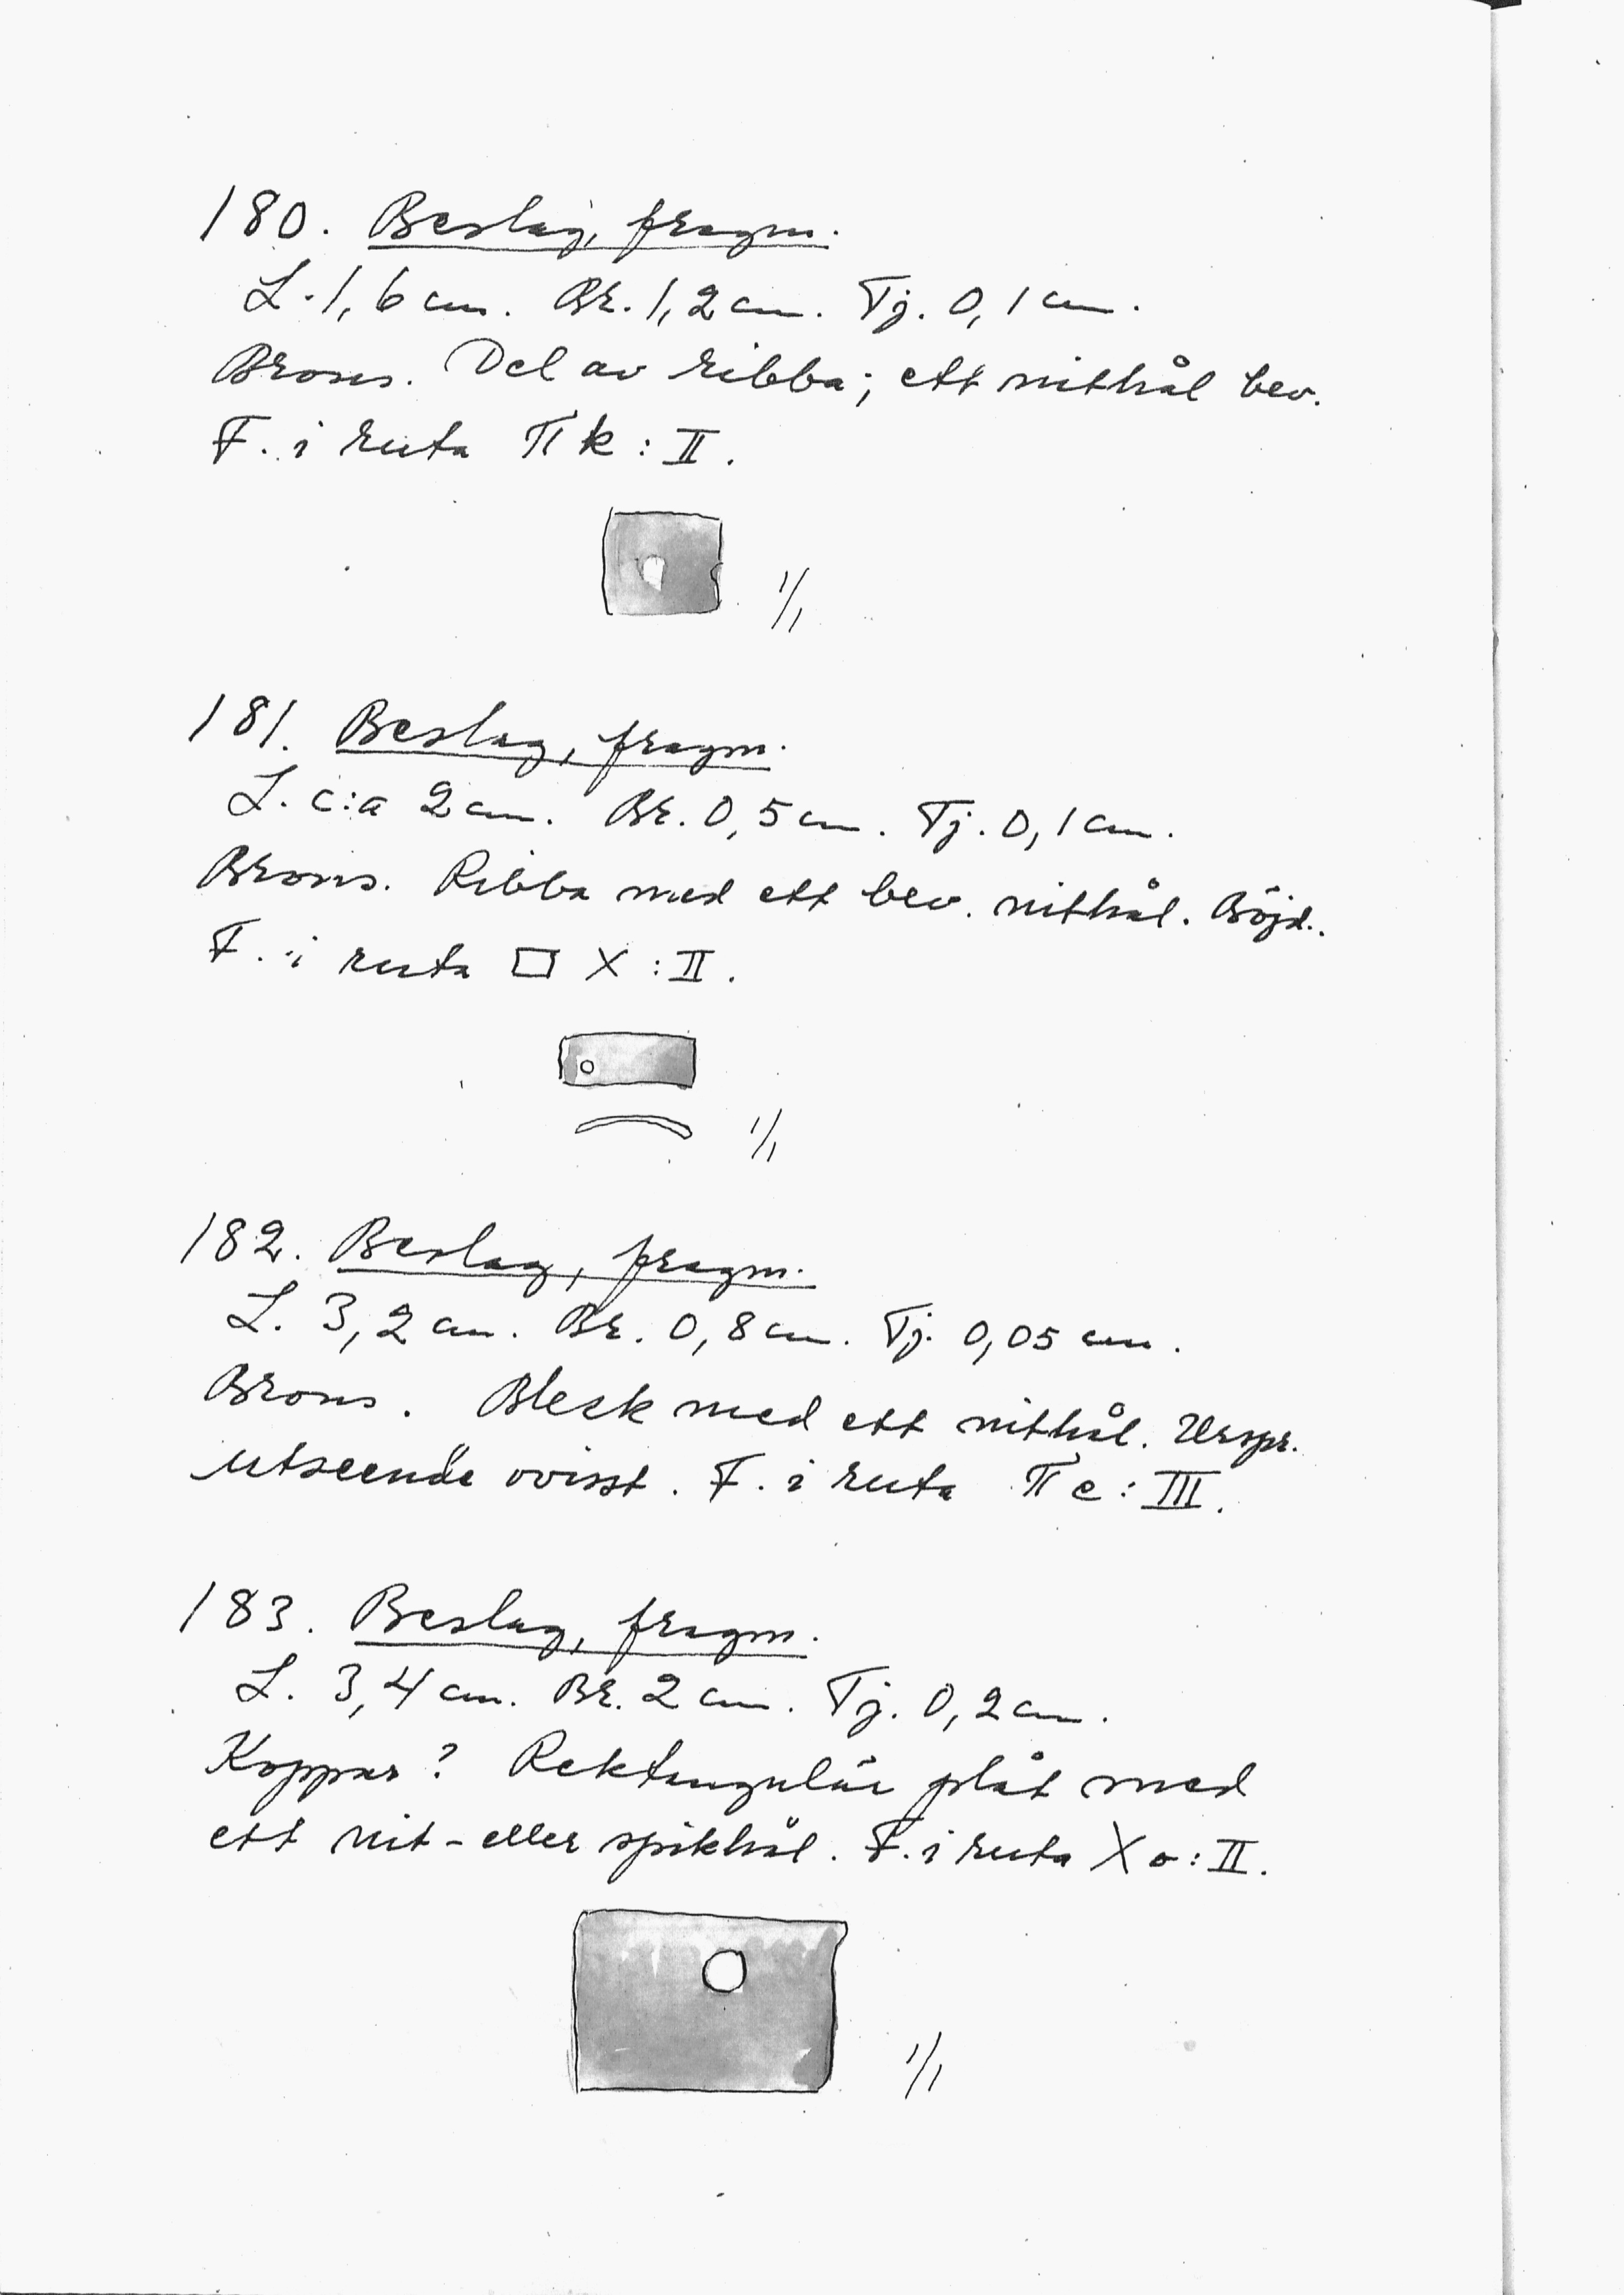 180. Beslag, fragm.
L. 1,6 cm. Br. 1,2 cm. Tj. 0,1 cm.
Brons. Del av ribba; ett nithål bev.
F. i ruta Π k : II.
1/1
181. Beslag, fragm.
L. c:a 2 cm. Br. 0,5 cm. Tj. 0,1 cm.
Brons. Ribba med ett bev. nithål. Böjd.
F. i ruta □ X : II.
1/1
182. Beslag, fragm.
L. 3,2 cm. Br. 0,8 cm. Tj. 0,05 cm.
Brons. Bleck med ett nithål. Urspr.
utseende ovisst. F. i ruta Π e : III.
183. Beslag, fragm.
L. 3,4 cm. Br. 2 cm. Tj. 0,2 cm.
Koppar? Rektangulär plåt med
ett nit- eller spikhål. F. i ruta X o : II.
1/1